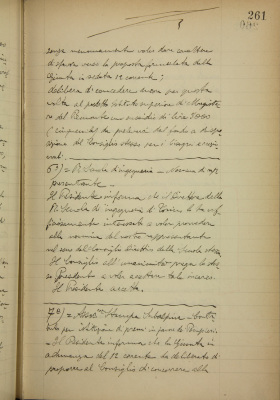 261
senza menomamente voler dare carattere
di spesa verso la proposta formulata dalla
Giunta in seduta 12 corrente;
delibera di concedere ancora per questa
volta al predetto Istituto superiore di Magistero
del Piemonte un sussidio di Lire 5000
(cinquemila) da prelevarsi dal fondo a disposizione
del Consiglio stesso per i bisogni eventuali.
6°) = R. Scuola d'ingegneria = Nomina di rappresentante.
Il Presidente informa che il Direttore della
R. Scuola di ingegneria di Torino lo ha
interessato a voler provvedere
alla nomina del nostro rappresentante
nel seno del Consiglio Direttivo della Scuola stessa.
Il Consiglio all'unanimità prega lo stesso
Presidente a voler accettare tale incarico.
Il Presidente accetta.
7°) = Stampa Subalpina =
per istituzione di premi in favore
Il Presidente informa che la Giunta in
adunanza del 12 corrente ha deliberato di
proporre al Consiglio di concorrere alla